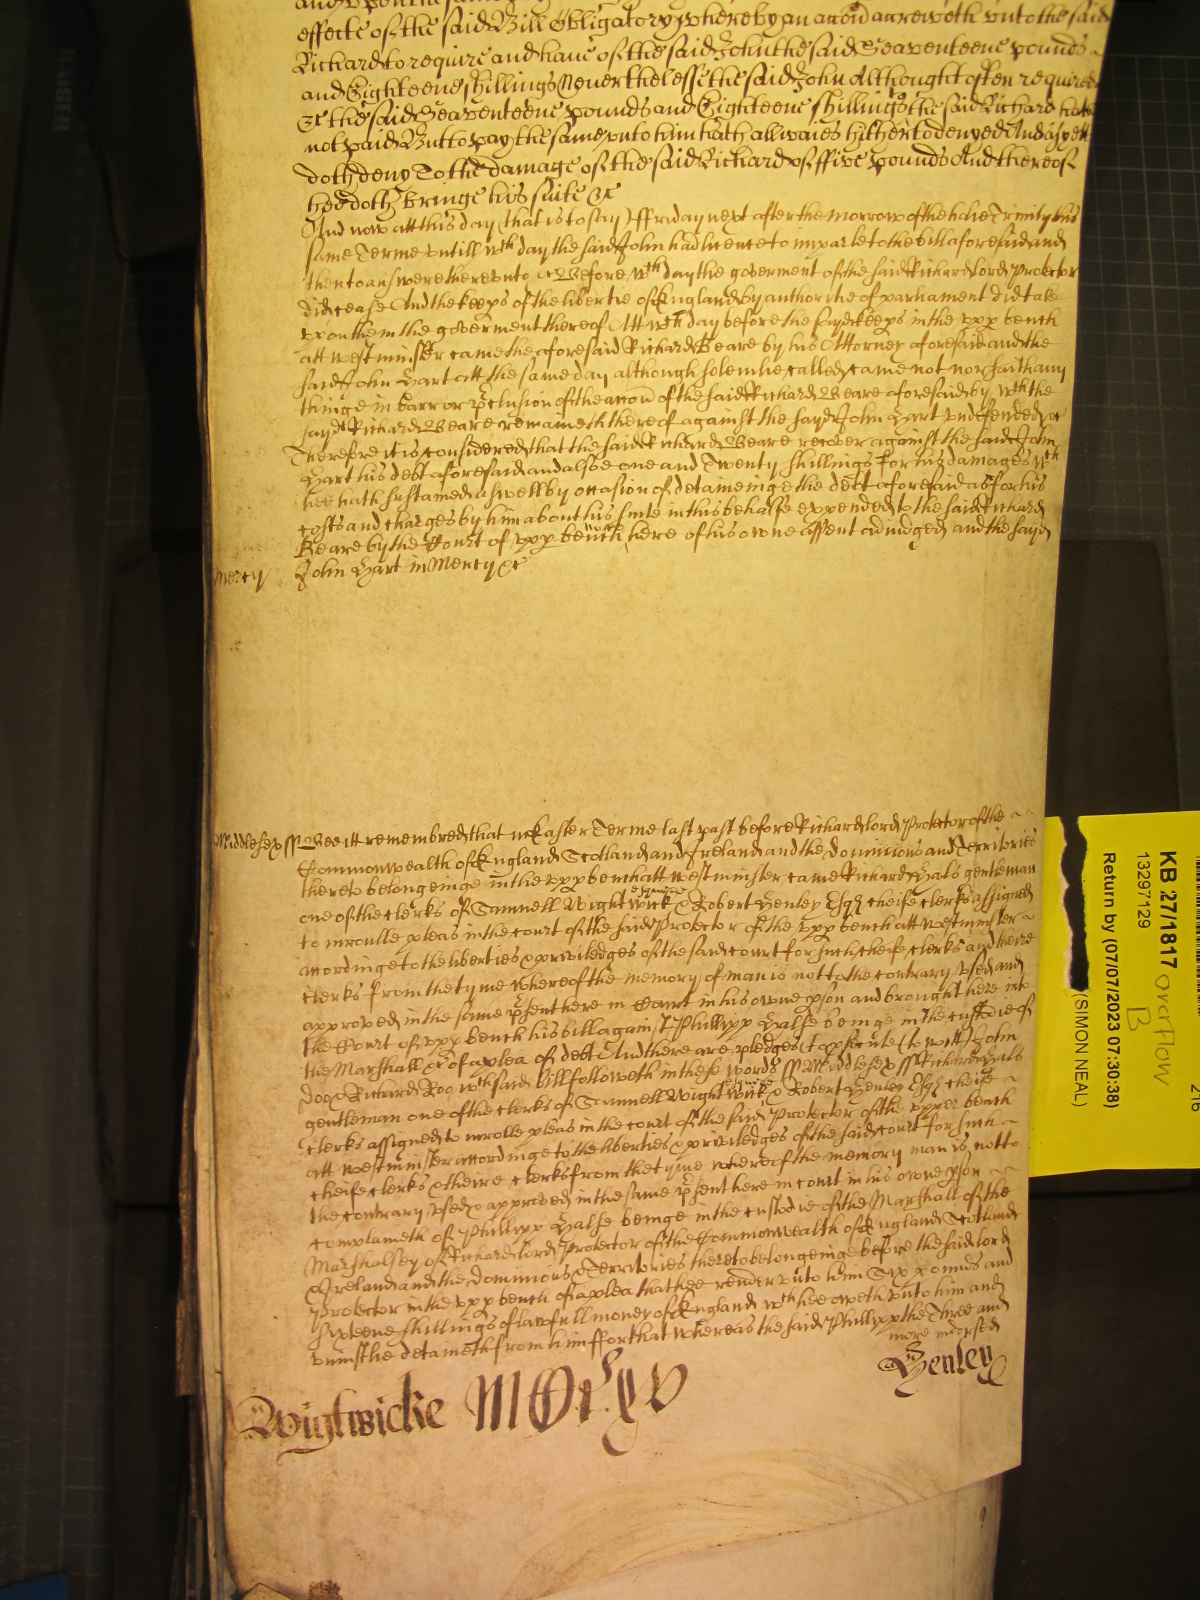 effecte of the said Bill Obligatory whereby an accon accreweth unto the said
Richard to require and have of the said John the said Seaventeene pounds
and Eighteene shillings Neverthelesse the said John Althought often required
&c the said Seaventeene pounds and Eighteene shillings the said Richard hath
not paid But to pay the same unto him hath allwaies hitherto denyed And as yett
doth deny To the damage of the said Richard of ffive pounds And thereof
hee doth bringe his suite &c
And now att this day (that is to say) ffriday next after the morrow of the holie Trinity this
same Terme untill wch day the said John had licence to imparle to the bill aforesaid and
then to answere thereunto &c Before wch day the goverment of the said Richard lord Protector
did cease And the keeps of the libertie of England by authoritie of parliament did take
upon them the goverment thereof Att wch day before the sayd keeps in the upp bench
att westminster came the aforesaid Richard Beare by his Attorney aforesaid and the
said John Hart att the same day although solemlie called came not nor saith any
thinge in barr or pclusion of the accon of the said Richard Beare aforesaid by wch the
sayd Richard Beare remaineth thereof against the sayd John Hart undefended &c
Therefore it is considered that the said Richard Beare recover against the said John
Hart his debt aforesaid and alsoe one and Twenty shillings for his damages wch
hee hath susteined aswell by occasion of deteineinge the debt aforesaid as for his
costs and charges by him about his suite in this behalfe expended to the said Richard
Beare by the Court of upp bench here of his owne assent adiudged and the sayd
Mercy John Hart in Mercy &c
Middlesex ss Bee itt remembred that in Easter Terme last past before Richard lord Protector of the
Commonwealth of England Scotland and Ireland and the dominions and Territories
thereto belongeinge in the upp bench att westminster came Richard Hals gentleman
one of the clerks of Samuell Wightwick & Robert Henley Esqs cheife clerks assigned
to inroulle pleas in the court of the said Protector of the upp bench att westminster
accordinge to the liberties & priviledges of the said court for such cheife clerks and theire
clerks from the tyme whereof the memory of man is not to the contrary used and
approved in the same psent here in Court in his owne pson and brought here into
the Court of upp bench his bill against Phillipp Halse beinge in the custodie of
the Marshall &c of a plea of debt And there are pledges to psecute (to witt) John
Doo & Richard Roo wch said bill followeth in these words ss Middlesex ss Richard Hals
gentleman one of the clerks of Samuell Wightwick & Robert Henley Esqs cheife
clerks assigned to inrolle pleas in the court of the said Protector of the upper bench
att westminster accordinge to the liberties & priviledges of the said court for such
cheife clerks & theire clerks from the tyme whereof the memory man is not to
the contrary used & approved in the same psent here in court in his owne pson
complaineth of Phillipp Halse beinge in the custodie of the Marshall of the
Marshalsey of Richard lord Protector of the Commonwealth of England Scotland
& Ireland and the dominions & Territories thereto belongeinge before the said lord
Protector in the upp bench of a plea that hee render unto him Six pounds and
Sixteene shillings of lawfull money of England wch hee oweth unto him and
uniustlie detaineth from him ffor that whereas the said Phillipp the Three and
more indorsed
Wightwicke
Henley
KB 27/1817 Overflow
B
13297129
Return by (07/07/2023 07:30:38)
(SIMON NEAL)